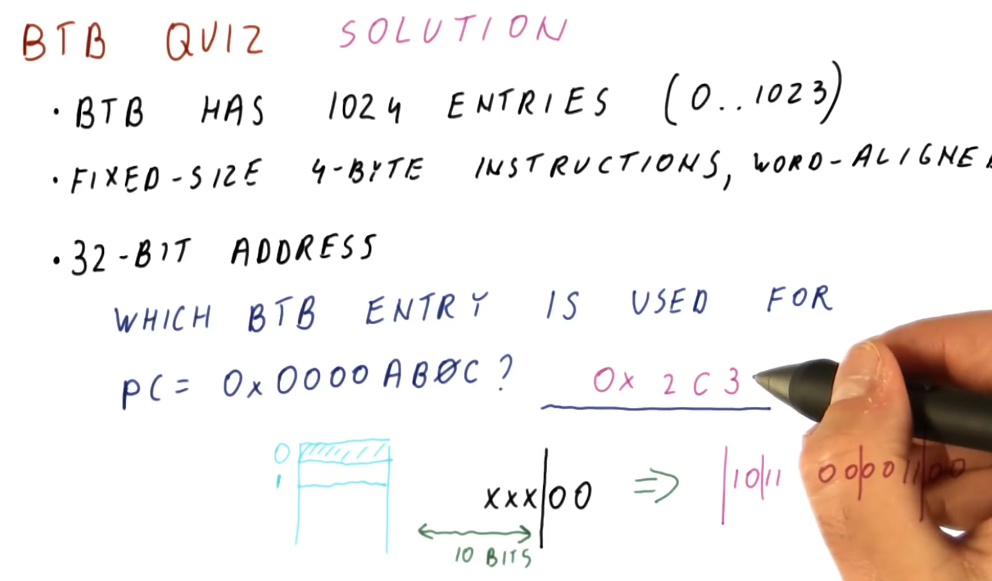 BTB QUIZ SOLUTION
• BTB HAS 1024 ENTRIES (0..1023)
• FIXED-SIZE 4-BYTE INSTRUCTIONS, WORD-ALIGNE
• 32-BIT ADDRESS
WHICH BTB ENTRY IS USED FOR
PC = 0x0000AB0C? 0x 2C3
0
1
xxx|00 ⇒ |10|11 00|00 11|00
10 BITS